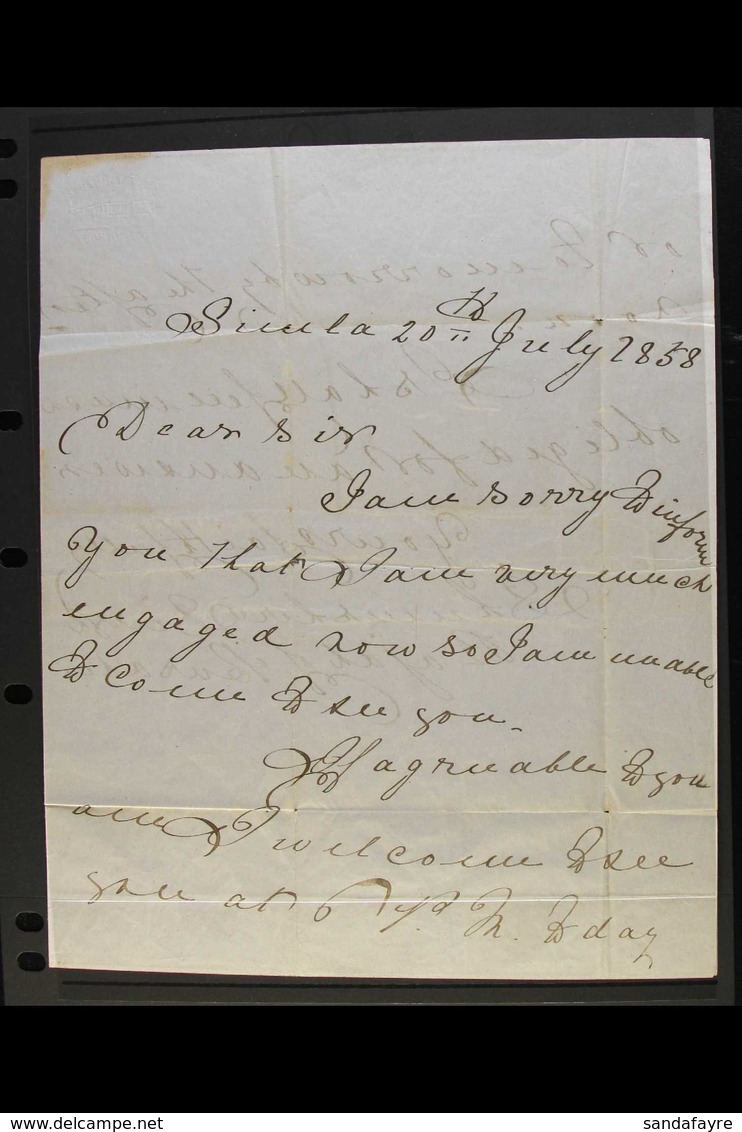 Simla 20th July 1858
Dear Sir
I am sorry to inform
you that I am very much
engaged now so I am unable
to come to see you.
If agreuable to you
am I welcome to see
you at P. M. to day
sandafayre